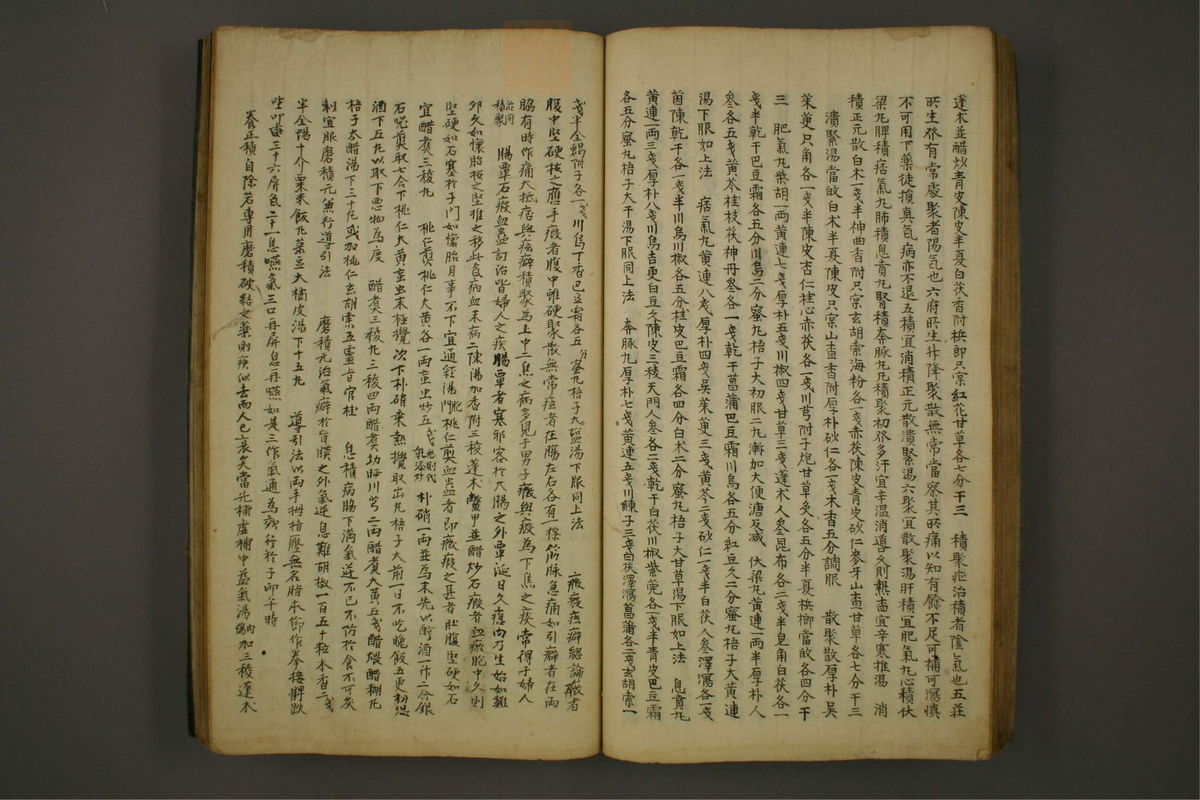 蓬朮並醋炒靑皮陳皮半夏白茯香附枳卽只宗紅花甘草各七分干三 積聚症治積者陰氣也五莊
所生發有常處聚者陽氣也六府所生升降聚散無常當察其所痛以知有餘不足可補可瀉愼
不可用下藥徒損眞氣病亦不退五積宜消積正元散潰緊湯六聚宜散聚湯肝積宜肥氣丸心積伏
梁丸脾積痞氣丸肺積息賁丸腎積奔豚丸凡積聚初發多汗宜辛溫消導久則熱畜宜辛寒推湯 消
積正元散白朮一戔半神曲香附只宗玄胡索海粉各一戔赤茯陳皮靑皮砂仁麥牙山査甘草各七分干三
潰緊湯當歸白朮半夏陳皮只宗山査香附厚朴砂仁各一戔木香五分調服 散聚散厚朴吳
茱萸只角各一戔半陳皮杏仁桂心赤茯各一戔川芎附子炮甘草灸各五分半夏梹榔當歸各四分干
三 肥氣丸柴胡一両黃連七戔厚朴五戔川椒四戔甘草三戔蓬朮人參昆布各二戔半皂角白茯各一
戔半乾干巴豆霜各五分川烏二分蜜丸梧子大初服二九漸加大便溏反减 伏梁丸黃連一両半厚朴人
參各五戔黃芩桂枝茯神丹參各一戔乾干菖蒲巴豆霜川烏各五分紅豆久二分蜜丸梧子大黃連
湯下服如上法 痞氣丸黃連八戔厚朴四戔吳茱萸三戔黃芩二戔砂仁一戔半白茯人參澤瀉各一戔
茵陳乾干各一戔半川烏川椒各五分桂皮巴豆霜各四分白朮二分蜜丸梧子大甘草湯下服如上法 息賁丸
黃連一両三戔厚朴八戔川烏吉更白豆久陳皮三稜天門人參各二戔乾干白茯川椒紫莞各一戔半靑皮巴豆霜
各五分蜜丸梧子大干湯下服同上法 奔豚丸厚朴七戔黃連五戔川練子三戔白茯澤瀉菖蒲各二戔玄胡索一
戔半全蝎附子各一戔川烏丁香巴豆霜各五分蜜丸梧子大塩湯下服同上法 癥瘕痃癖總論癥者
腹中堅硬按之應手瘕者腹中雖硬聚散無常痃者在膓左右各有一條筋脉急痛如引癖者在両
脇有時作痛大抵痞與痃癖積聚爲上中二焦之病多見于男子癥與瘕爲下焦之疾常得于婦人
治同積聚 腸覃石瘕血蠱訂治皆婦人之疾腸覃者寒邪客於大膓之外覃涎日久瘜肉乃生始如雞
卵久如懷胎按之堅推之移月食病血末病二陳湯加香附三稜蓬朮鱉甲並醋炒石瘕者血瘕胞中久則
堅硬如石塞於子門如懷胎月事不下宜通經湯 桃仁煎血蠱者卽癥瘕之甚者肚腹堅硬如石
宜醋煮三稜丸 桃仁煎桃仁大黃各一両䖟虫炒五戔 朴硝一両並爲末先以醇酒一作二合銀
石呢煎取七合下桃仁大黃䖟虫末極攪次下朴硝來熟攪取出丸梧子大前一日不吃晩飯五更初溫
酒下五丸以取下惡物爲度 醋煮三稜丸三稜四両醋煮切晒川芎二両醋煮大黃五戔醋煨醋糊丸
梧子大醋湯下三十丸或加桃仁玄胡索五靈旨官桂 息積病脇下滿氣逆不已不仿於食不可灸
刺宜服磨積元兼行導引法 磨積元治氣癖於盲膜之外氣逆息難胡椒一百五十粒木香二戔
半全蝎十介粟米飯丸菉豆大橘皮湯下十五丸 導引法以両手拇指壓無名指本節作拳按髀趺
坐叩齒三十六屏氣二十一息嚥氣三口再屏息再嚥如是三作氣通爲效行於子卯午時
養正積自除若專用磨積破結之藥則疾似去而人已衰矣當先補虛補中益氣湯加三稜蓬朮